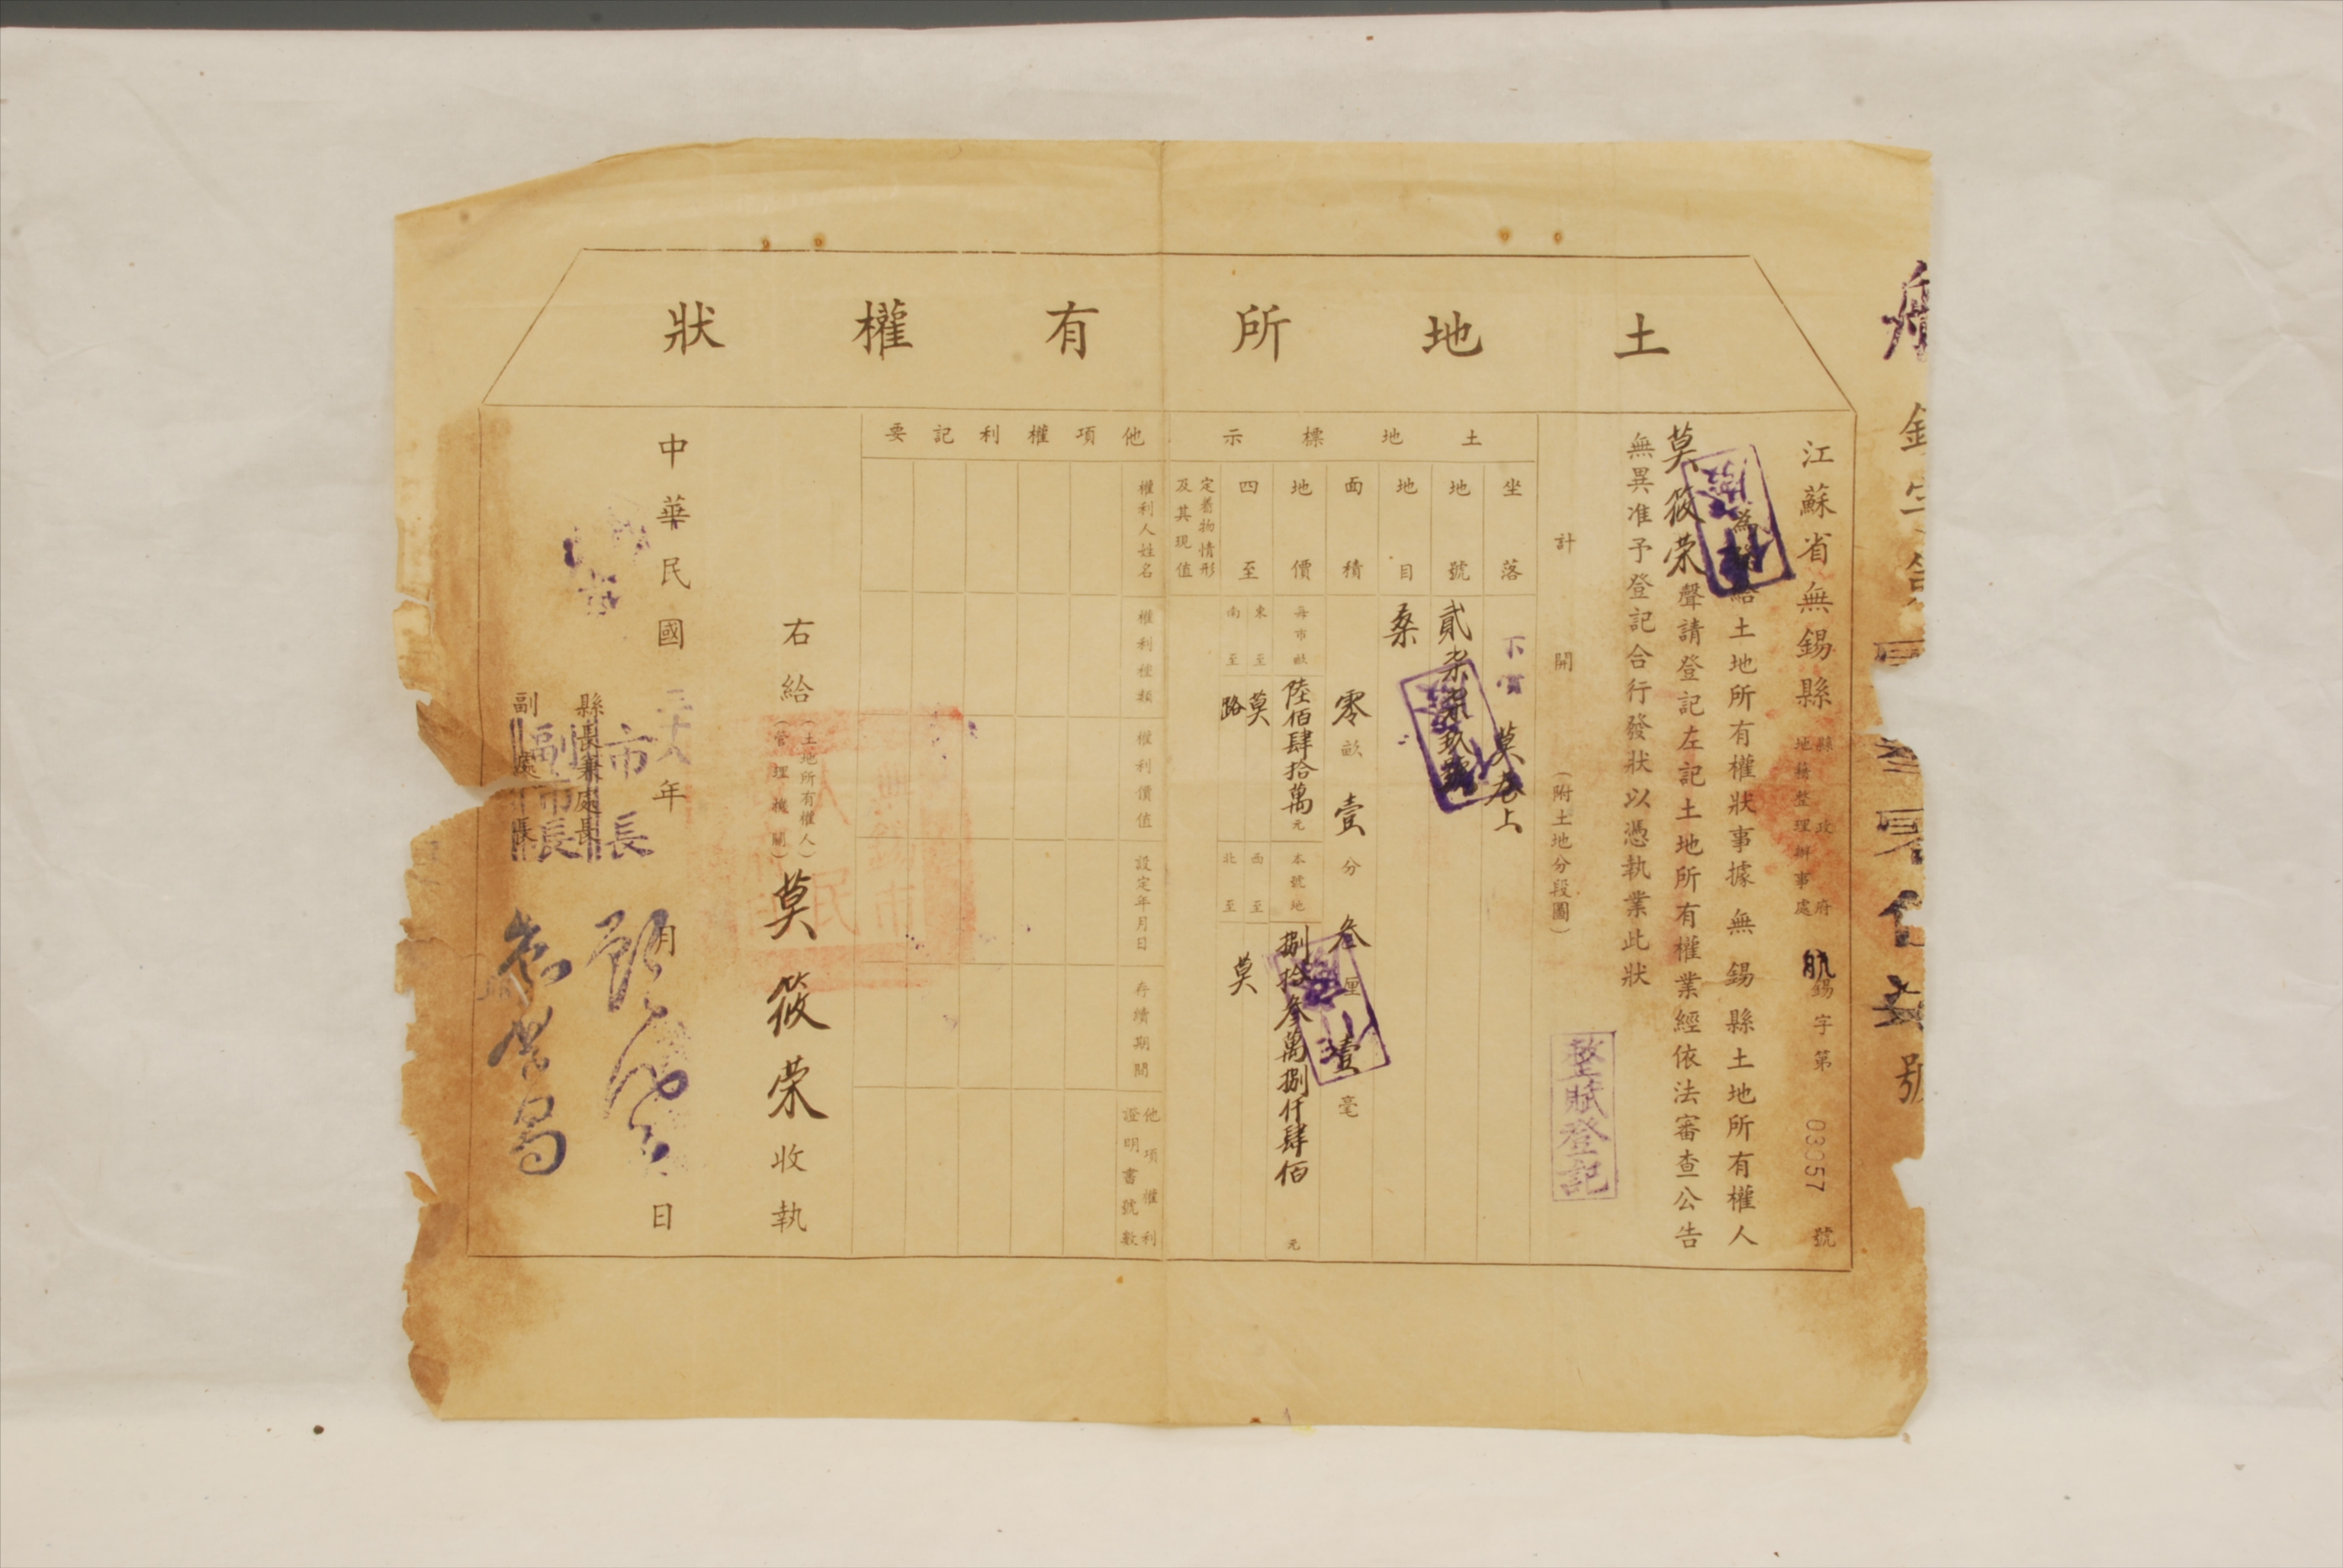 土地所有權狀
號
江蘇省無錫縣
縣政府
地籍整理辦事處
航錫字第03057號
為
給土地所有權狀事據無錫縣土地所有權人
莫筱荣聲請登記左記土地所有權業經依法審查公告
無異准予登記合行發狀以憑執業此狀
計開(附土地分段圖)
整賦登記
土地標示
坐落
莫巷上
地號
貳柒柒玖號
地目
桑
面積
零畝壹分叁厘壹毫
地價
每市畝陸佰肆拾萬元
本號地捌拾叁萬捌仟肆佰元
四至
東至莫
南至路
西至莫
北至
定着物情形
及其現值
他項權利記要
權利人姓名
權利種類
權利價值
設定年月日
存續期間
他項權利
證明書號數
右給(土地所有權人)
(管理機關)
莫筱荣收執
中華民國三十八年月日
縣長兼處長
市長
副處長
副市長